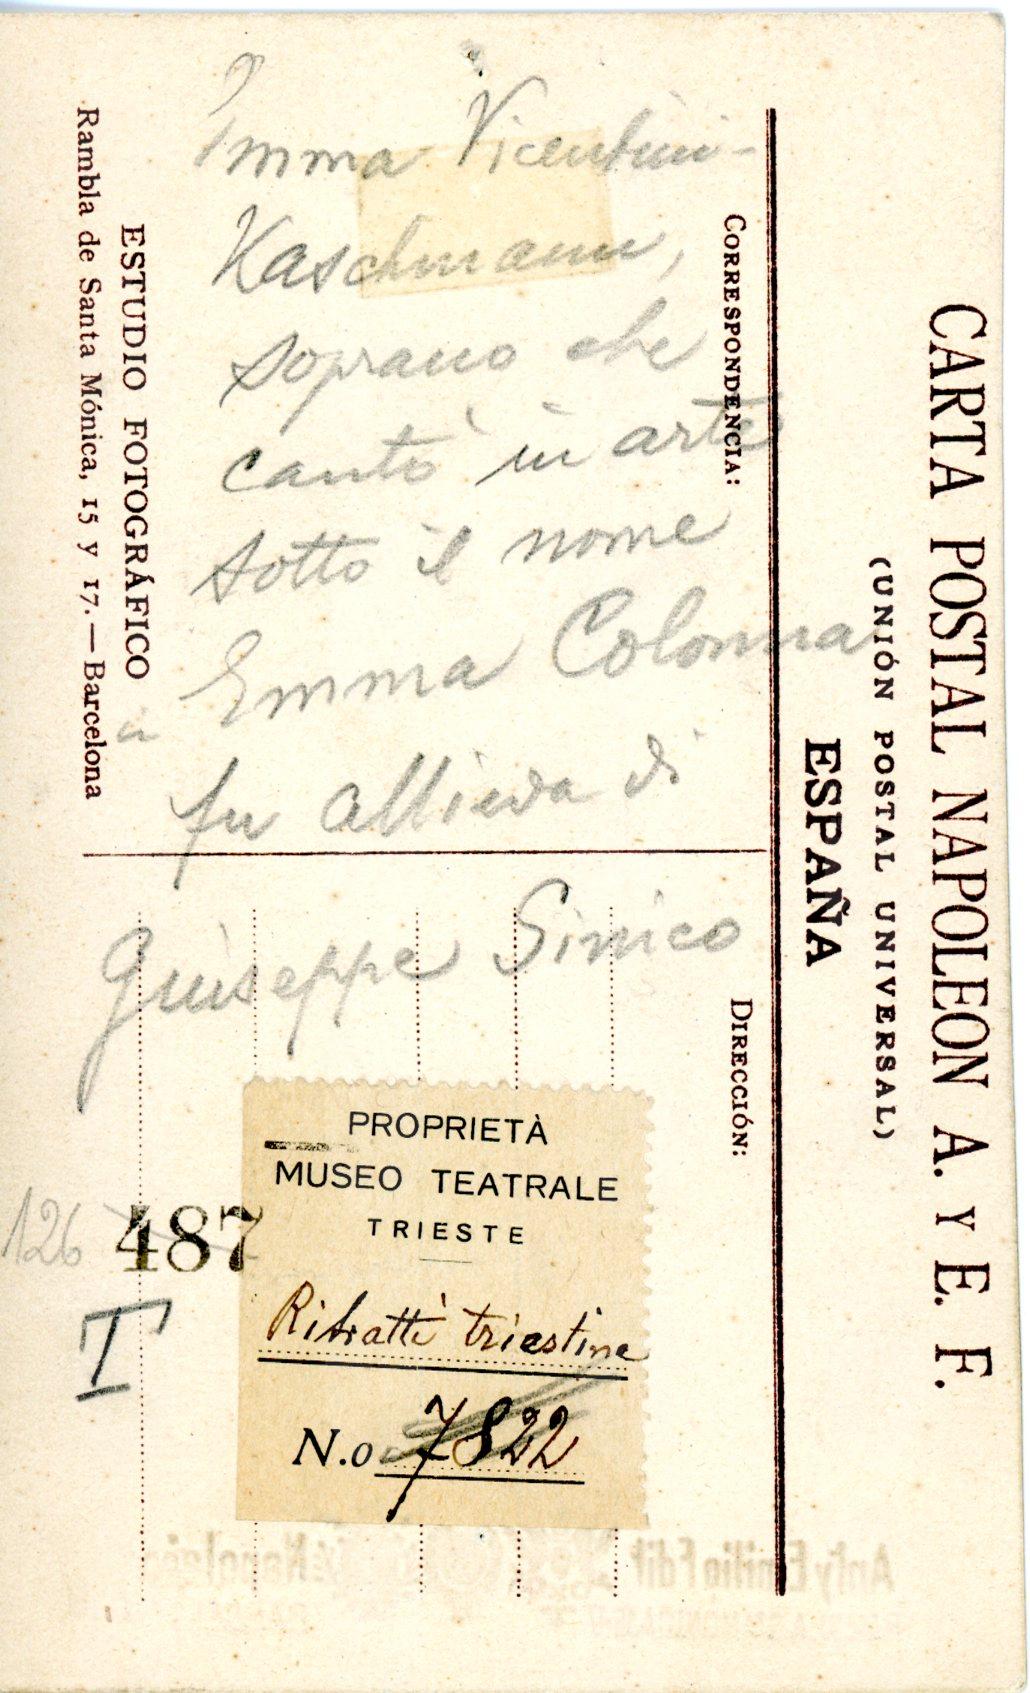 CARTA POSTAL NAPOLEON A. Y E. F.
(UNIÓN POSTAL UNIVERSAL)
ESPAÑA
CORRESPONDENCIA:
DIRECCIÓN:
ESTUDIO FOTOGRÁFICO
Rambla de Santa Mónica, 15 y 17.—Barcelona
Imma Vicentini-
Kaschmann,
soprano che
cantò in arte
sotto il nome
Emma Colonna
fu allieva di
Giuseppe Sinico
PROPRIETÀ
MUSEO TEATRALE
TRIESTE
Ritratti triestine
N.o 7822
126 487
T
Anty Emilio Fdit